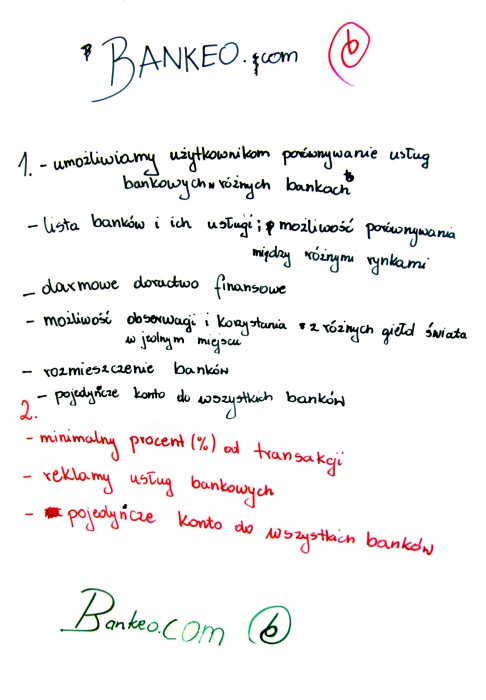 BANKEO.com b
1. - umożliwiamy użytkownikom porównywanie usług
bankowych w różnych bankach
- lista banków i ich usługi; możliwość porównywania
między różnymi rynkami
- daxmowe doractwo finansowe
- możliwość obserwagi i korzystania z różnych giełd świata
w jednym miejscu
- rozmieszczenie banków
- pojedyńcze konto do wszystkich banków
2.
- minimalny procent (%) od transakcji
- reklamy usług bankowych
- pojedyńcze konto do wszystkich banków
Bankeo.com b